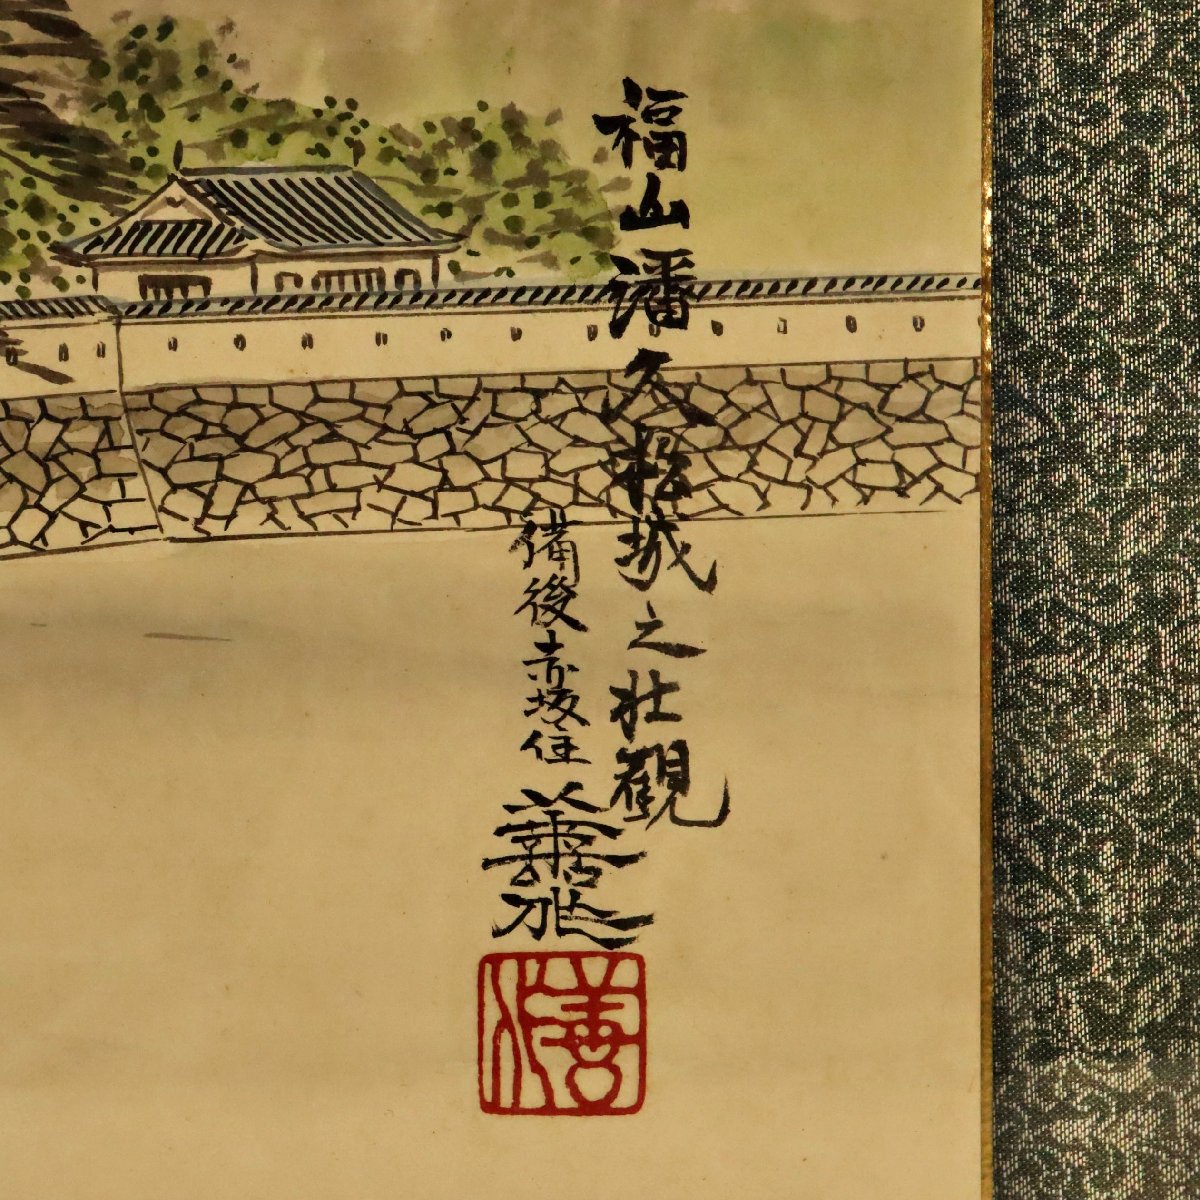 福山藩久松城之壮観
備後赤坂住